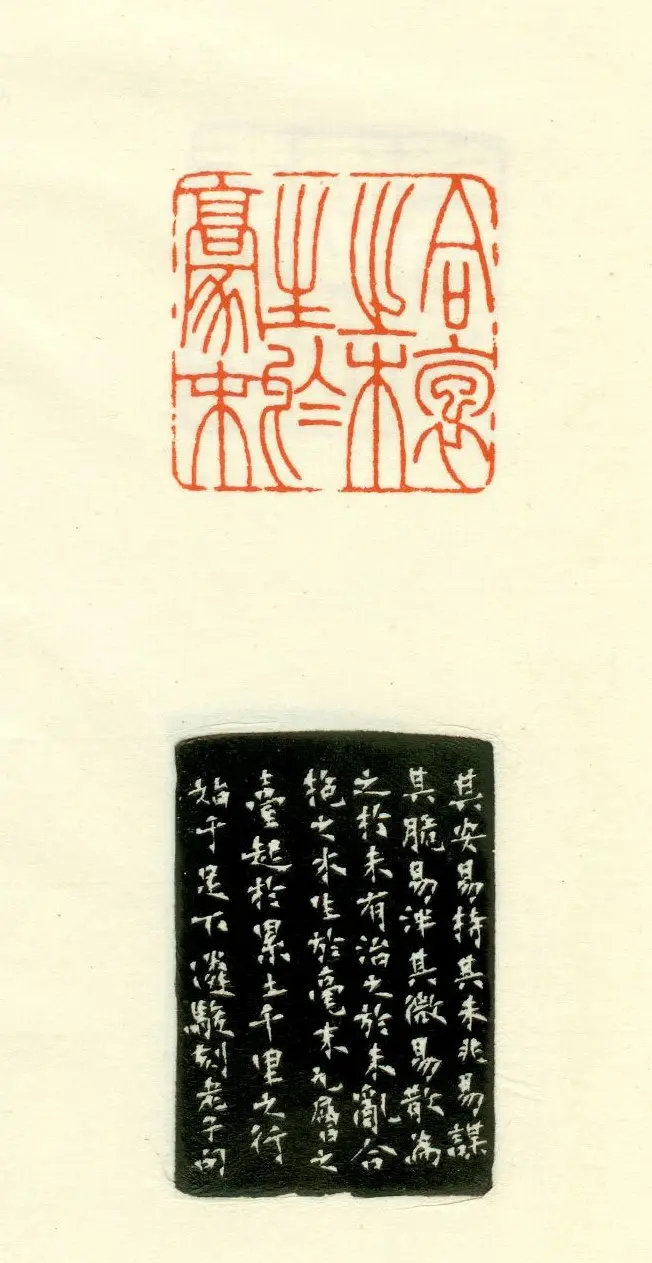 合袌
之木
生於
豪末
其安易持其未兆易謀
其脆易泮其微易散為
之於未有治之於未亂合
抱之木生於毫末九層之
臺起於累土千里之行
始于足下駿刻老子句